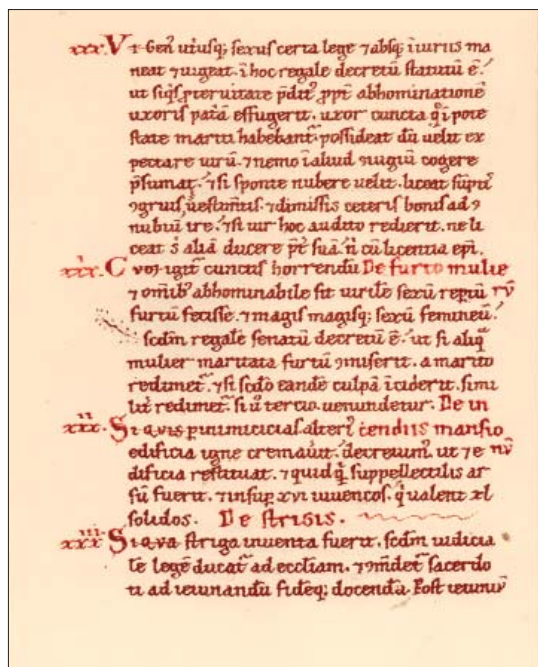 xxx. Vt Gen' utiusq; sexus certa lege ⁊ absq; iniuriis ma
neat ⁊ uigeat. ĩ hoc regale decretũ statutũ ẽ.
ut siq̃s pteruitate p̃dit' ꝓpt' abhominationẽ
uxoris patã effugerit. uxor cuncta q̃ ĩ pote
state mariti habebant' possideat dũ uelit ex
pectare uirũ. ⁊ nemo ĩ aliud ꝯiugiũ cogere
p̃sumat. ⁊ si sponte nubere uelit. liceat sũpti'
ꝯgruis uestimtis. ⁊ dimissis ceteris bonis ad ꝯ
nubiũ ire. ⁊ si uir hoc audito redierit. ne li
ceat s' aliã ducere p̃t suã. ñ cũ licentia epi.
xxx. Cvoȷ igit' cunctis horrendũ De furto mulie
⁊ omib' abhominabile sit uirilẽ sexũ reptũ rũ
furtũ fecisse. ⁊ magis magisq; sexũ femineũ.
scdm regale senatũ decretũ ẽ. ut si aliq̃
mulier maritata furtũ ꝯmiserit. a marito
redimet'. ⁊ si scdo eandẽ culpã ĩciderit. simi
lit' redimet'. si ũ tercio. uenundetur. De in
xxxii Siqvis p inimicicias alteri' cendiis mansio
edificia igne cremauit. decreuim'. ut ⁊ e nũ
dificia restituat. ⁊ quid q̃ suppellectilis ar
sũ fuerit. ⁊ insup xvi iuuencos. q̃ ualent xl
solidos. De strigis.
xxxiii Siqva striga inuenta fuerit. scdm iudicia
lẽ legẽ ducat' ad eccliam. ⁊ ꝯmdet' sacerdo
ti ad ieiunandũ fideq; docenda. Post ieiuniũ